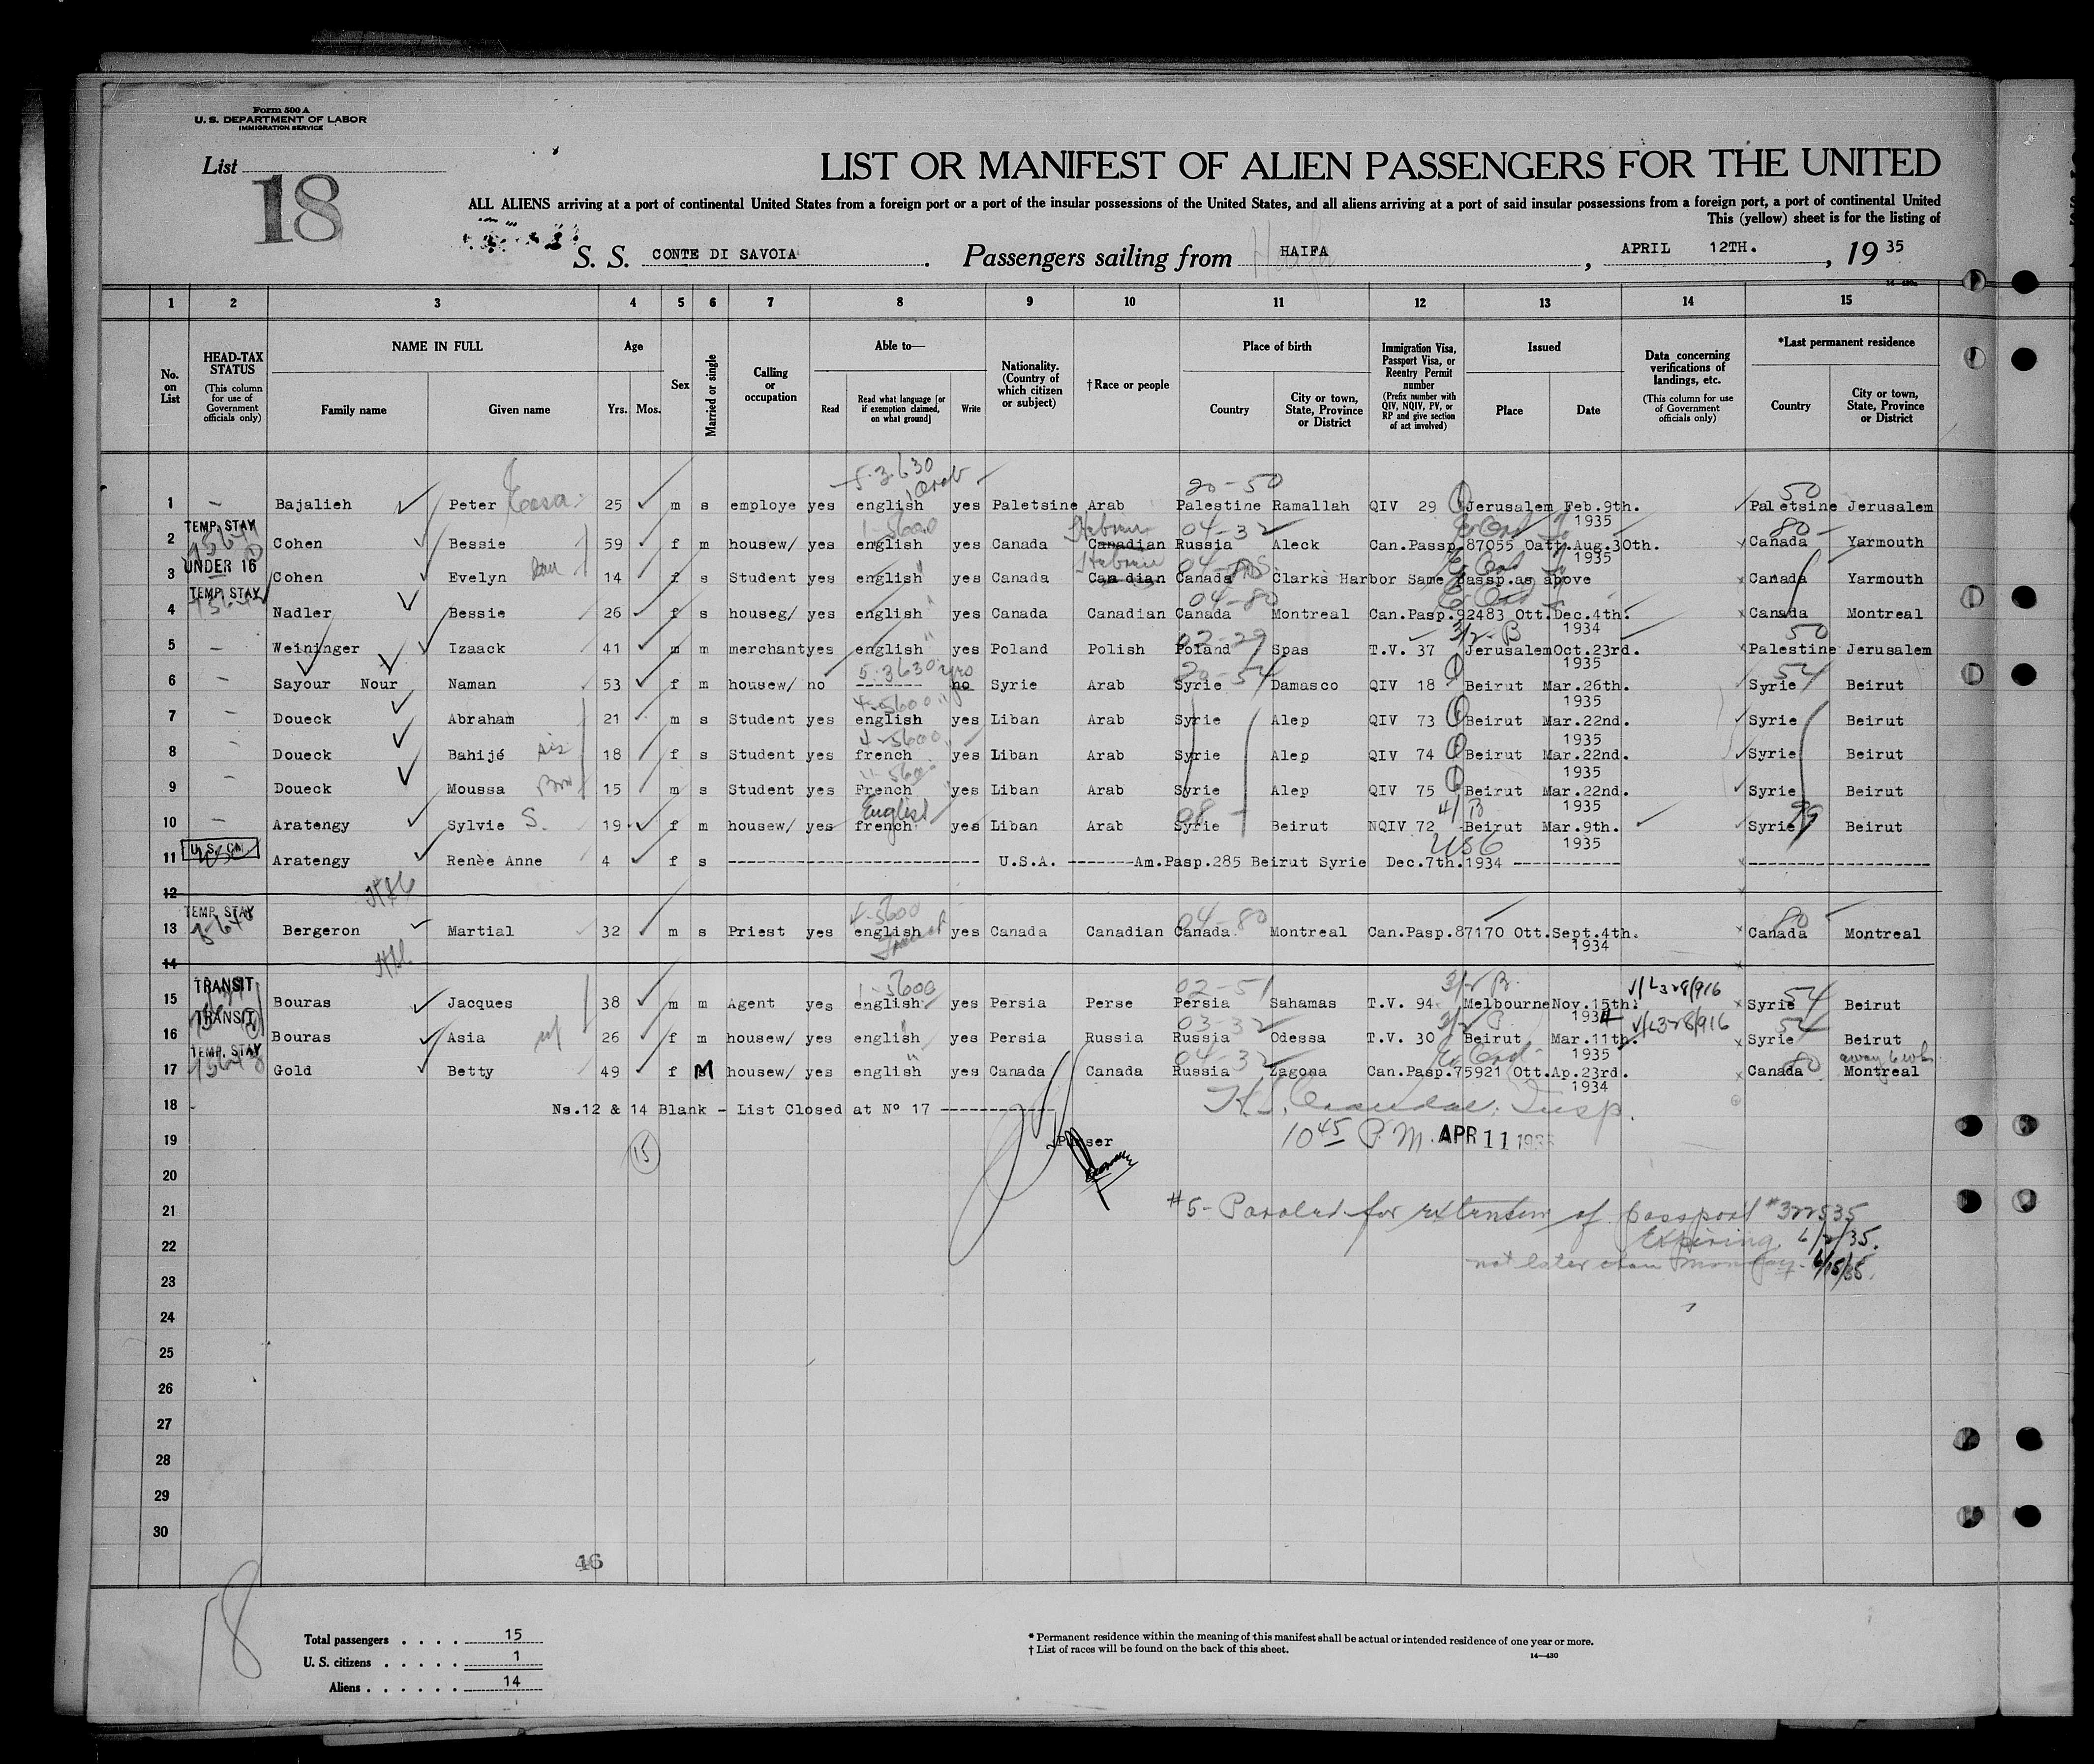 Form 500 A
U. S. DEPARTMENT OF LABOR
IMMIGRATION SERVICE
List
18
LIST OR MANIFEST OF ALIEN PASSENGERS FOR THE UNITED
ALL ALIENS arriving at a port of continental United States from a foreign port or a port of the insular possessions of the United States, and all aliens arriving at a port of said insular possessions from a foreign port, a port of continental United
This (yellow) sheet is for the listing of
S. S. CONTE DI SAVOIA. Passengers sailing from HAIFA, APRIL 12TH., 19 35
1 2 3 4 5 6 7 8 9 10 11 12 13 14 15
No. on List
HEAD-TAX STATUS (This column for use of Government officials only)
NAME IN FULL Family name Given name
Age Yrs. Mos.
Sex
Married or single
Calling or occupation
Able to— Read Read what language [or if exemption claimed, on what ground] Write
Nationality. (Country of which citizen or subject)
†Race or people
Place of birth Country City or town, State, Province or District
Immigration Visa, Passport Visa, or Reentry Permit number (Prefix number with QIV, NQIV, PV, or RP and give section of act involved)
Issued Place Date
Data concerning verifications of landings, etc. (This column for use of Government officials only)
*Last permanent residence Country City or town, State, Province or District
5-3630 Arab 20-50 50
1 – Bajalieh Peter 25 m s employe yes english yes Paletsine Arab Palestine Ramallah QIV 29 Jerusalem Feb.9th. 1935 Paletsine Jerusalem
TEMP. STAY 1-5600 Hebrew 04-32 80
2 Cohen Bessie 59 f m housew/ yes english yes Canada Canadian Russia Aleck Can.Passp.87055 Oatt.Aug.30th. 1935 Canada Yarmouth
UNDER 16 Hebrew
3 Cohen Evelyn 14 f s Student yes english " yes Canada Canadian Canada Clarks Harbor Same passp.as above Canada Yarmouth
TEMP. STAY 04-80
4 Nadler Bessie 26 f s houseg/ yes english " yes Canada Canadian Canada Montreal Can.Pasp.92483 Ott.Dec.4th. 1934 Canada Montreal
02-29 3/2-B 50
5 – Weininger Izaack 41 m m merchant yes english " yes Poland Polish Poland Spas T.V. 37 Jerusalem Oct.23rd. 1935 Palestine Jerusalem
5-3630 20-54 54
6 – Sayour Nour Naman 53 f m housew/ no ------- no Syrie Arab Syrie Damasco QIV 18 Beirut Mar.26th. 1935 Syrie Beirut
4-5600 "
7 – Doueck Abraham 21 m s Student yes english yes Liban Arab Syrie Alep QIV 73 Beirut Mar.22nd. 1935 Syrie Beirut
4-5600
8 – Doueck Bahijé sis 18 f s Student yes french yes Liban Arab Syrie Alep QIV 74 Beirut Mar.22nd. 1935 Syrie Beirut
9 – Doueck Moussa Bro 15 m s Student yes French yes Liban Arab Syrie Alep QIV 75 Beirut Mar.22nd. 1935 Syrie Beirut
English 4/ B
10 – Aratengy Sylvie S. 19 f m housew/ yes french yes Liban Arab Syrie Beirut NQIV 72 Beirut Mar.9th. 1935 Syrie Beirut
U.S. CN.
11 Aratengy Renèe Anne 4 f s ------------------------ U.S.A. -------Am.Pasp.285 Beirut Syrie Dec.7th.1934 ----------- ------------------
12
TEMP. STAY 4-5600 04-80 80
13 Bergeron Martial 32 m s Priest yes english yes Canada Canadian Canada Montreal Can.Pasp.87170 Ott.Sept.4th. 1934 Canada Montreal
14
TRANSIT 1-5600 02-51 3/2 B. V/L328/916 54
15 Bouras Jacques 38 m m Agent yes english yes Persia Perse Persia Sahamas T.V. 94 Melbourne Nov.15th. 1934 Syrie Beirut
TRANSIT 03-32 V/L328/916 54
16 Bouras Asia 26 f m housew/ yes english " yes Persia Russia Russia Odessa T.V. 30 Beirut Mar.11th. 1935 Syrie Beirut
TEMP. STAY 04-32 80 away 6 wks
17 Gold Betty 49 f M housew/ yes english " yes Canada Canada Russia Zagona Can.Pasp.75921 Ott.Ap.23rd. 1934 Canada Montreal
18 Ns.12 & 14 Blank - List Closed at Nº 17 ------------ Insp.
19 Purser 10 45 P.M. APR 11 193
15
20
21 #5- Paroled for extension of Passport #322535
22 Expiring 6/2/35.
23 not later than Monday 6/15/35.
24
25
26
27
28
29
30
46
18
Total passengers . . . . 15
U. S. citizens . . . . . 1
Aliens . . . . . . 14
* Permanent residence within the meaning of this manifest shall be actual or intended residence of one year or more.
† List of races will be found on the back of this sheet.
14—430